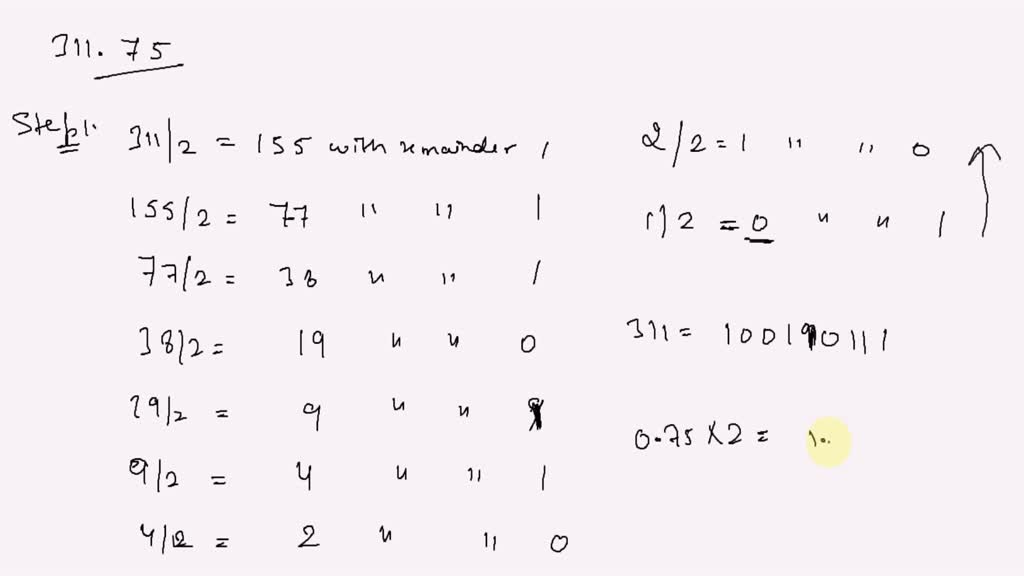 311.75
Step 1.
311/2 = 155 with remainder 1
155/2 = 77 " " 1
77/2 = 38 " " 1
38/2 = 19 " " 0
19/2 = 9 " " 1
9/2 = 4 " " 1
4/2 = 2 " " 0
2/2 = 1 " " 0
1/2 = 0 " " 1
311 = 100110111
0.75 X 2 = 1.